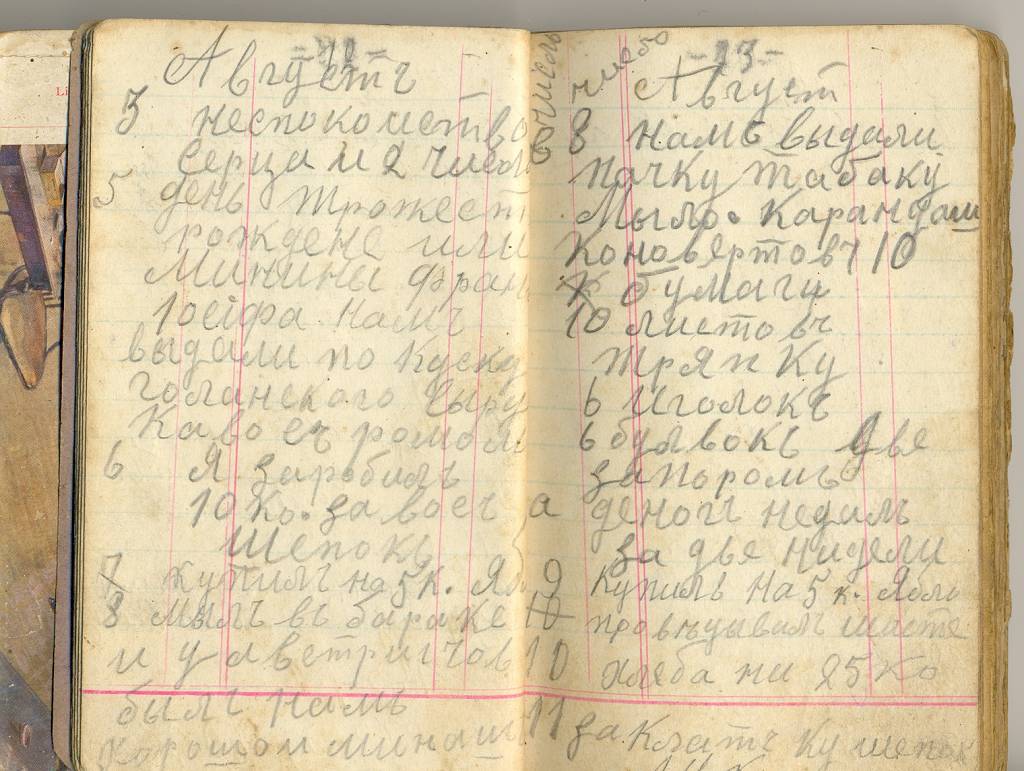 Августъ
3 неспокоиство
серца и 2 числ
5 день трожест
рождене или
Минины фран
1осифа. намъ
выдали по куску
голанского сыру
Каво съ ромоя
6 Я заробилъ
10 Ко. за воесъ
шепокъ
7 Купилъ на 5 к. Ябл
8 мылъ въ бараке
и у австрпичов
былъ намъ
хорошои минаш
-13-
число
вчисло
Август
8 намъ выдали
Пачку табаку
Мыло. Карандаш
Коновертовъ 10
бумаги
10 листовъ
тряпку
6 иголокъ
6 булвокъ две
запоромъ
а деногъ недалъ
за две нидели
9 Купилъ на 5 к. Ябло
10
10 хлеба ни 25 Ко
11 за